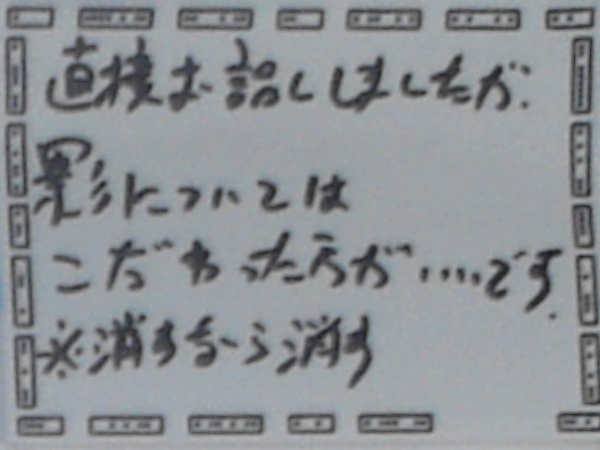 直接お話ししましたが、
影については
こだわった方が・・・です。
※消すなら消す